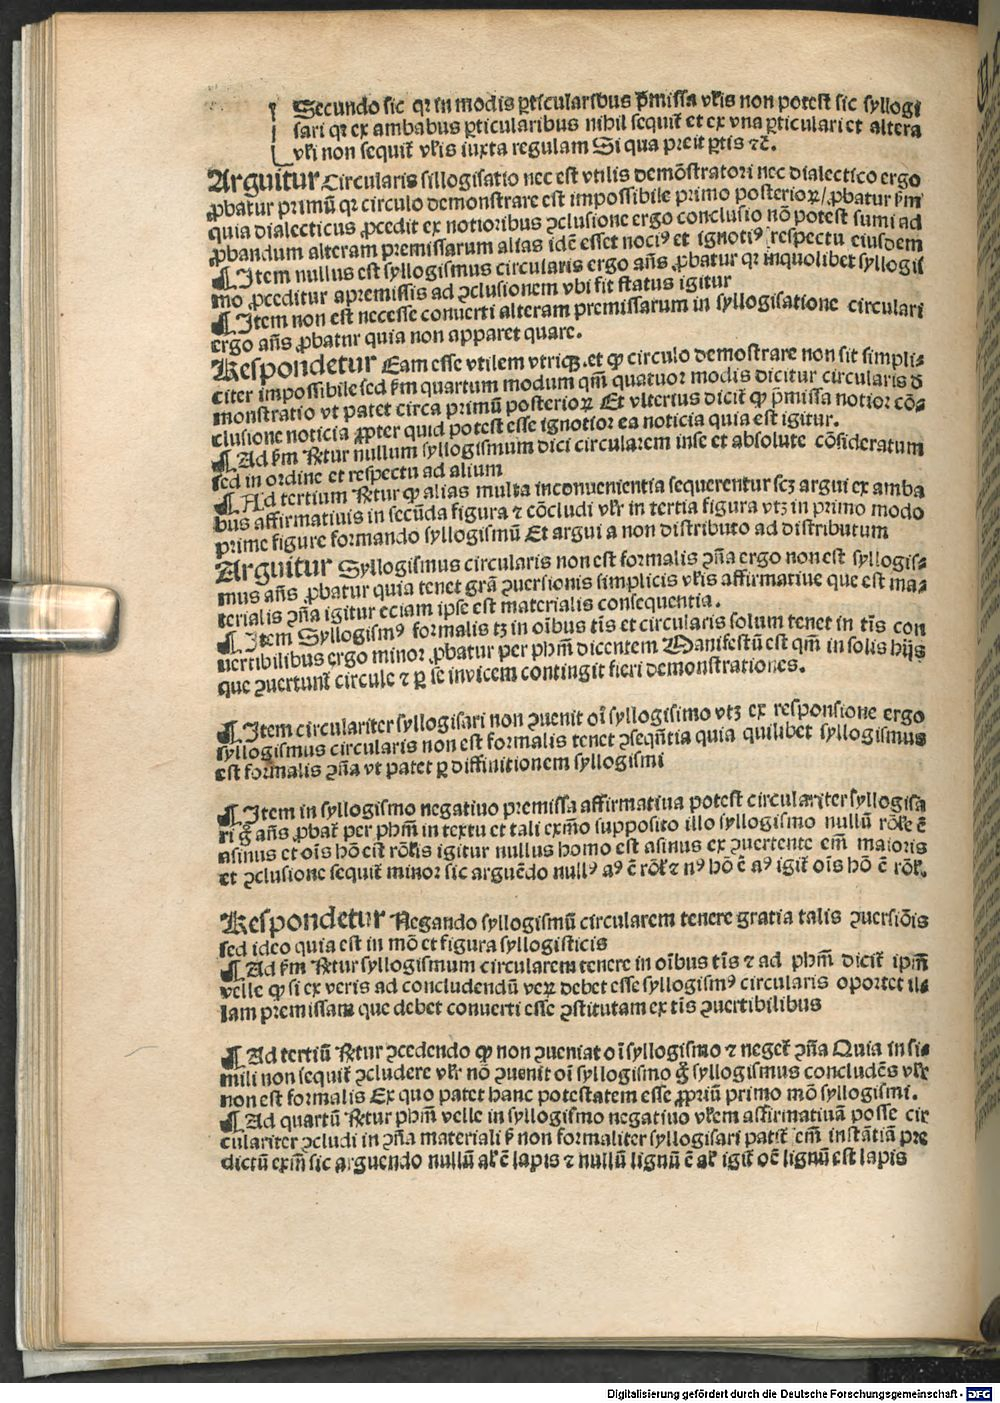 Secundo sic qꝛ in modis ꝑticularibus p̄missa vl̄is non potest sic syllogi
sari qꝛ ex ambabus ꝑticularibus nihil sequit᷑ et ex vna ꝑticulari et altera
vl̄i non sequit᷑ vl̄is iuxta regulam Si qua preit ꝑtis ⁊c̄.
Arguitur Circularis sillogisatio nec est vtilis demōstratori nec dialectico ergo
ꝓbatur primū qꝛ circulo demonstrare est impossibile primo posterioꝝ/ ꝓbatur ẜm
quia dialecticus ꝓcedit ex notioribus ꝯclusione ergo conclusio nō potest sumi ad
ꝓbandum alteram premissarum alias idē esset nociꝰ et ignotiꝰ respectu eiusdem
¶ Item nullus est syllogismus circularis ergo an̄s ꝓbatur qꝛ inquolibet syllogis
mo ꝓceditur apremissis ad ꝯclusionem vbi fit status igitur
¶ Item non est necesse conuerti alteram premissarum in syllogisatione circulari
ergo an̄s ꝓbatur quia non apparet quare.
Respondetur Eam esse vtilem vtriqꝫ .et ꝙ circulo demostrare non sit simpli⸗
citer impossibile sed ẜm quartum modum qm̄ quatuor modis dicitur circularis d̄
monstratio vt patet circa primū posterioꝝ Et vlterius dicit᷑ ꝙ p̄missa notior cō⸗
clusione noticia ꝓpter quid potest esse ignotior ea noticia quia est igitur.
¶ Ad ẜm Rn̄tur nullum syllogismum dici circularem inse et absolute cōsideratum
sed in ordine et respectu ad alium
¶ Ad tertium Rn̄tur ꝙ alias multa inconuenientia sequerentur scꝫ argui ex amba
bus affirmatiuis in secūda figura ⁊ cōcludi vl̄r in tertia figura vtꝫ in primo modo
prime figure formando syllogismū Et argui a non distributo ad distributum
Arguitur Syllogismus circularis non est formalis ꝯn̄a ergo non est syllogis⸗
mus an̄s ꝓbatur quia tenet grā ꝯuersionis simplicis vl̄is affirmatiue que est ma⸗
terialis ꝯn̄a igitur eciam ipse est materialis consequentia.
¶ Item Syllogismꝰ formalis tꝫ in oībus t̄is et circularis solum tenet in t̄is con
uertibilibus ergo minor ꝓbatur per ph̄m dicentem Manifestū est qm̄ in solis hijs
que ꝯuertunt᷑ circule ⁊ ꝑ se invicem contingit fieri demonstrationes.
¶ Item circulariter syllogisari non ꝯuenit oī syllogisimo vtꝫ ex responsione ergo
syllogismus circularis non est formalis tenet ꝯseqn̄tia quia quilibet syllogismus
est formalis ꝯn̄a vt patet ꝑ diffinitionem syllogismi
¶ Item in syllogismo negatiuo premissa affirmatiua potest circulariter syllogisa
ri g̊ an̄s ꝓbat᷑ per ph̄m in textu et tali exm̄o supposito illo syllogismo nullū rōl̄e ē
asinus et oīs hō est rōl̄is igitur nullus homo est asinus ex ꝯuertente em̄ maioris
et ꝯclusione sequit᷑ minor sic arguēdo nullꝰ aꝰ ē rōl̄ ⁊ nꝰ hō ē aꝰ igit᷑ oīs hō ē rōl̄.
Respondetur Negando syllogismū circularem tenere gratia talis ꝯuersiōis
sed ideo quia est in mō et figura syllogisticis
¶ Ad ẜm Rn̄tur syllogismum circularem tenere in oībus t̄is ⁊ ad ph̄m dicit᷑ ip̄m
velle ꝙ si ex veris ad concludendū veꝝ debet esse syllogismꝰ circularis oportet il⸗
lam premissam que debet conuerti esse ꝯstitutam ex t̄is ꝯuertibilibus
¶ Ad tertiū Rn̄tur ꝯcedendo ꝙ non ꝯueniat oī syllogismo ⁊ neget᷑ ꝯn̄a Quia in si⸗
mili non sequit᷑ ꝯcludere vl̄r nō ꝯuenit oī syllogismo g̊ syllogismus concludēs vl̄r
non est formalis Ex quo patet hanc potestatem esse ꝓpriū primo mō syllogismi.
¶ Ad quartū Rn̄tur ph̄m velle in syllogismo negatiuo vl̄em affirmatiuā posse cir
culariter ꝯcludi in ꝯn̄a materiali ⁊ non formaliter syllogisari patit᷑ em̄ instātiā pre
dictū exm̄ sic arguendo nullū al̄ ē lapis ⁊ nullū lignū ē al̄ igit᷑ oē lignū est lapis
Digitalisierung gefördert durch die Deutsche Forschungsgemeinschaft - DFG